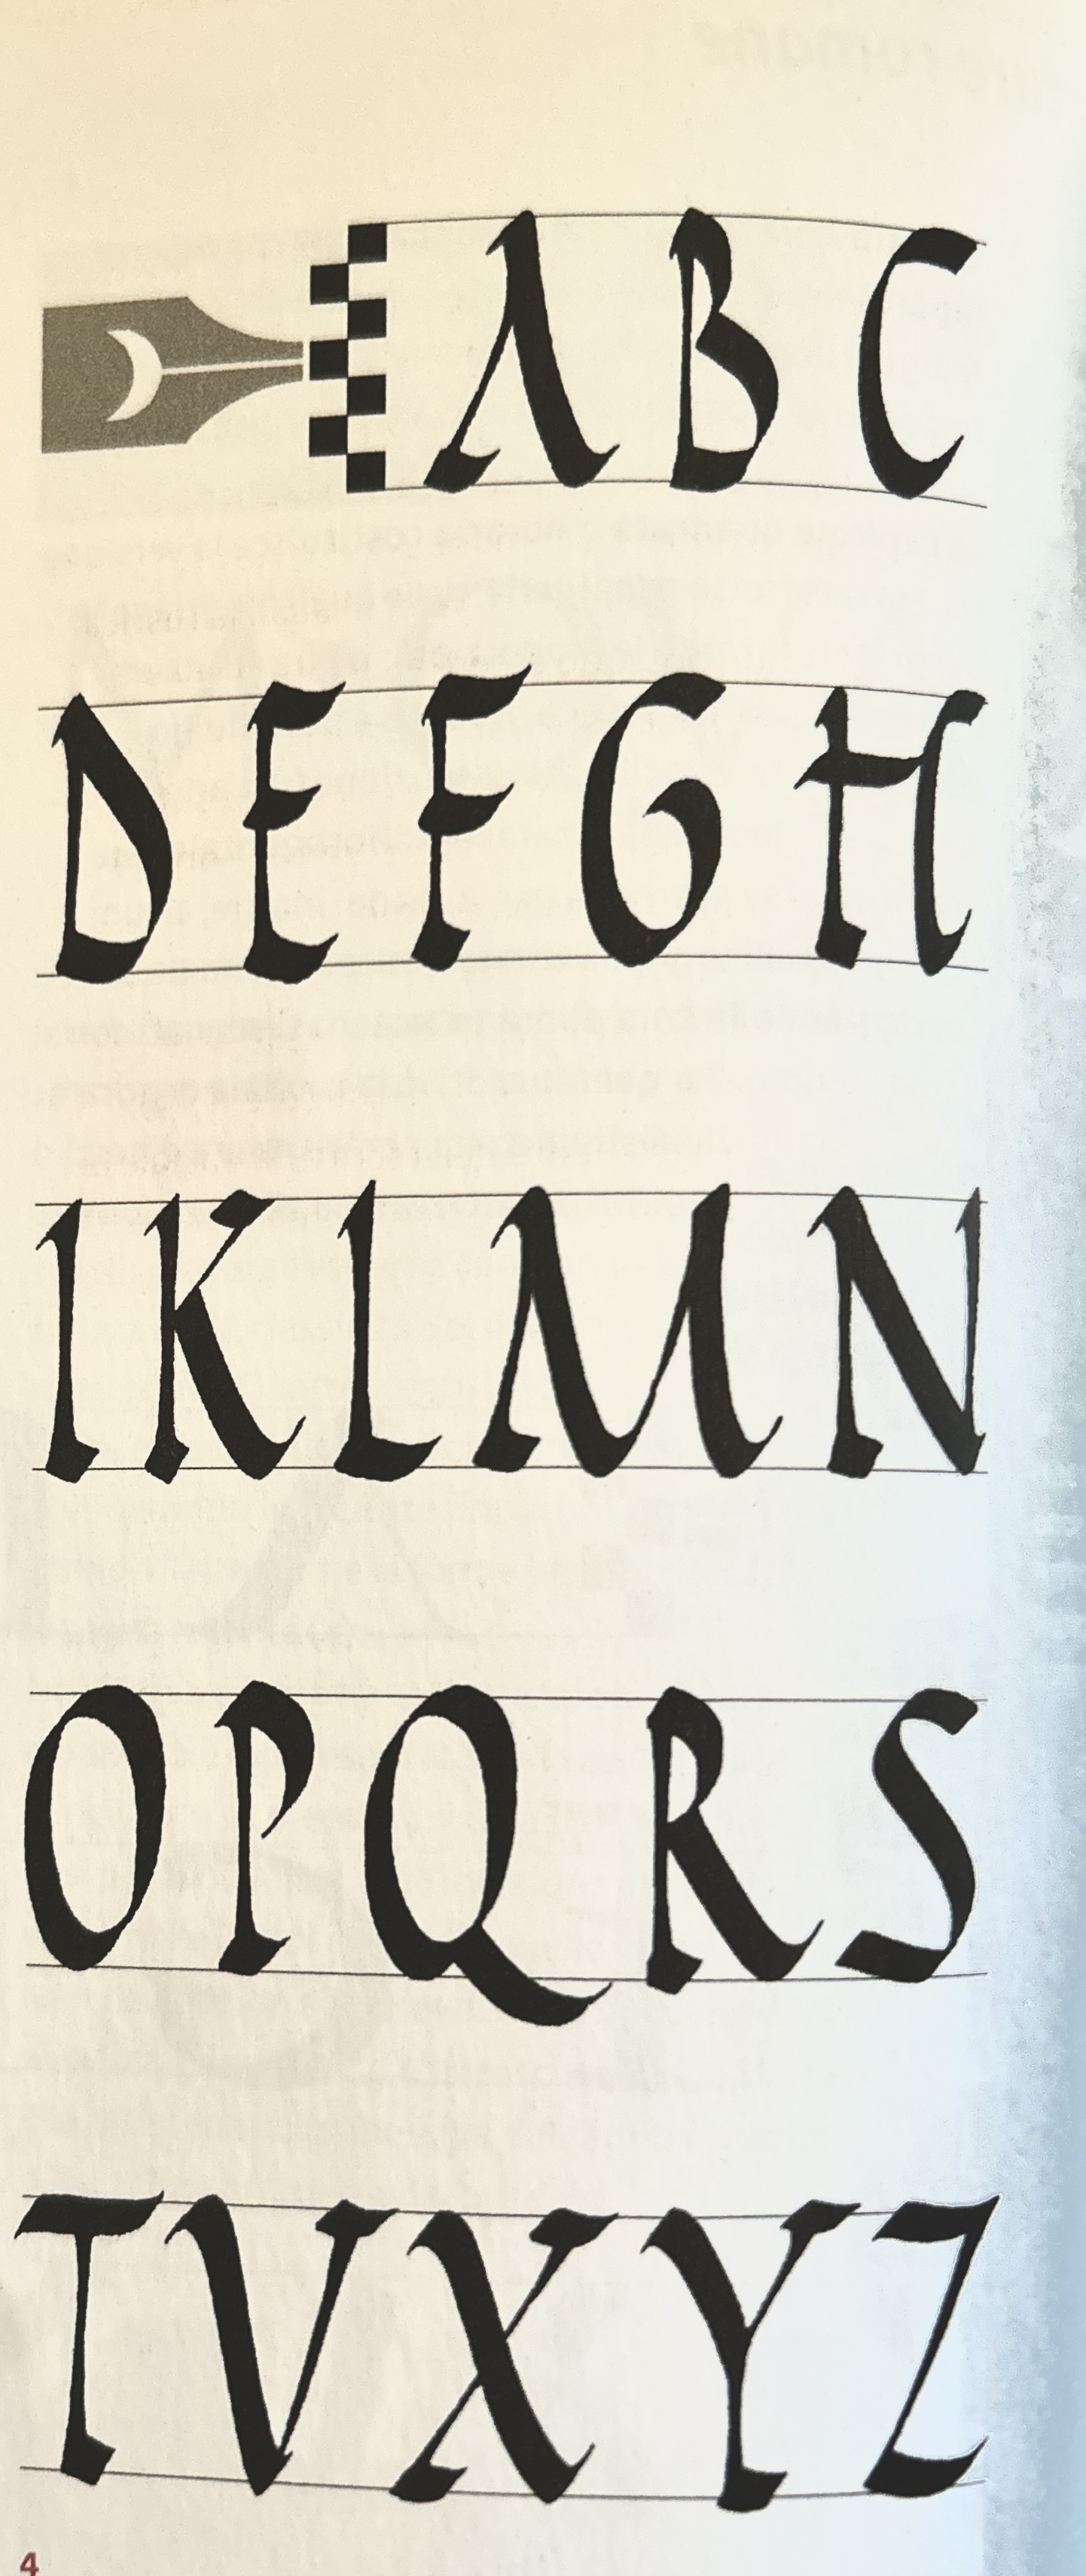 A B C
D E F G H
I K L M N
O P Q R S
T V X Y Z
4